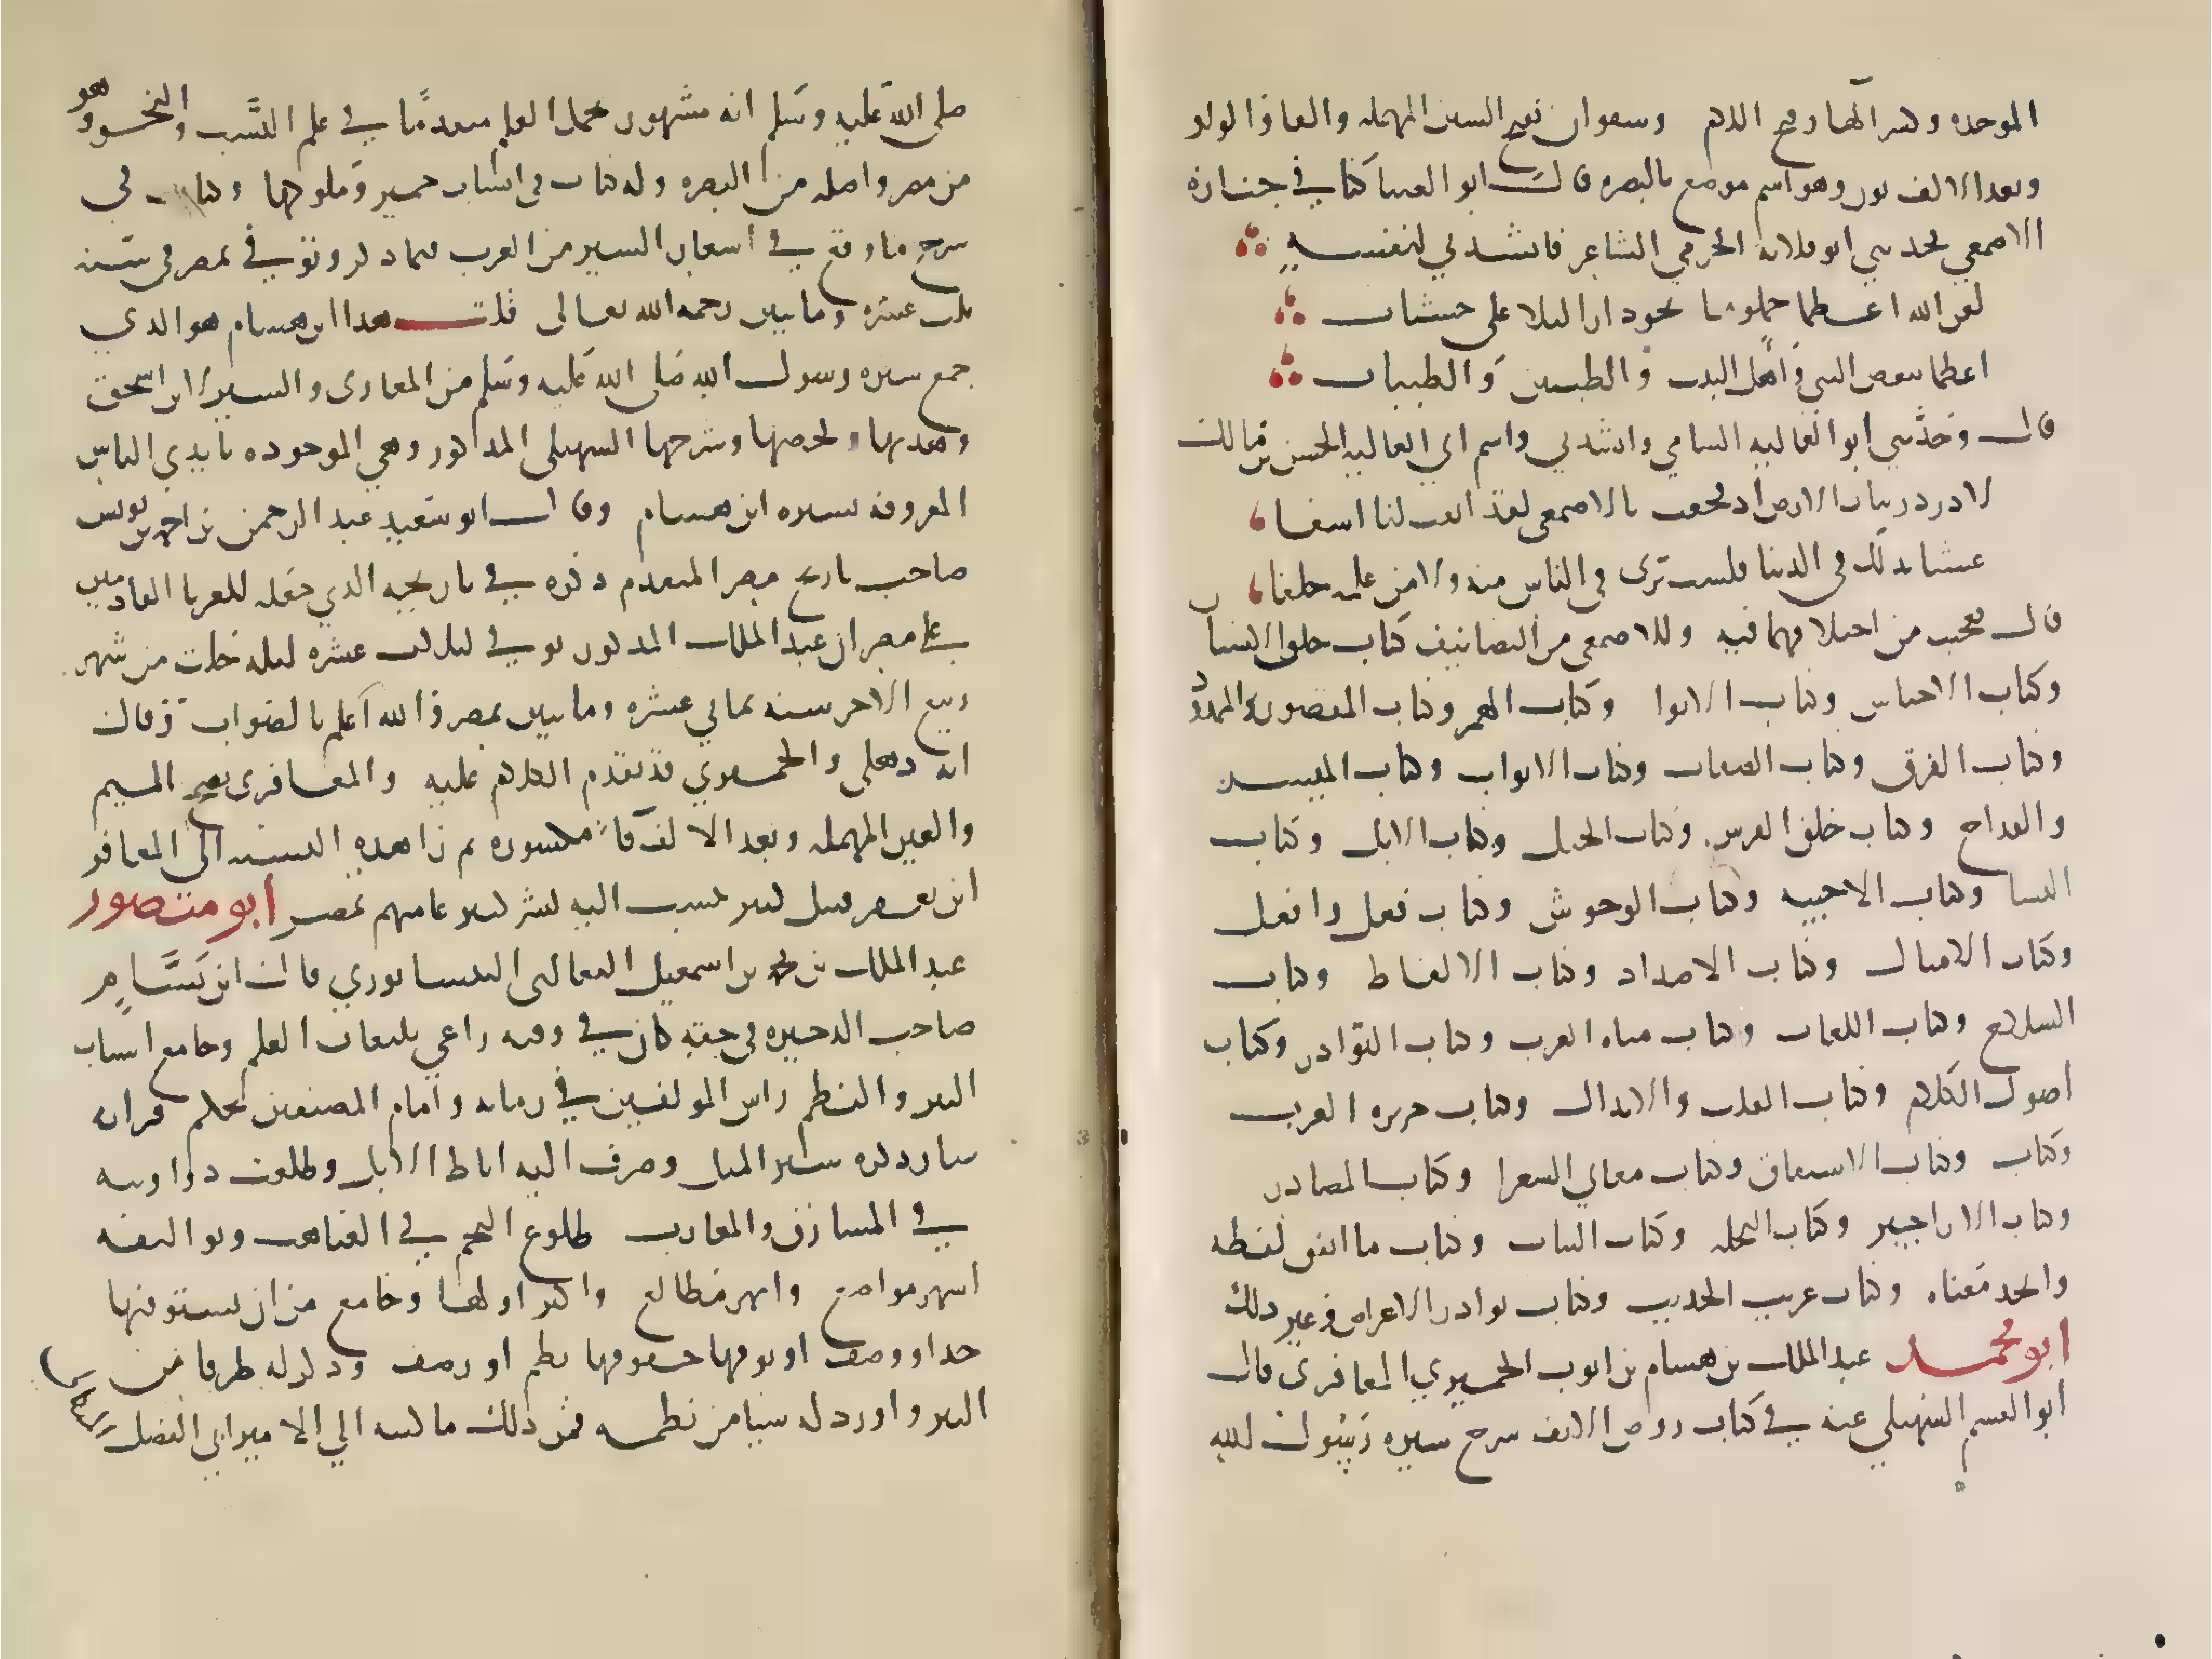 الموحده وكسر الهاء وفتح اللام وسفوان بفتح السين المهمله والفا والواو
وبعد الالف نون وهو اسم موضع بالبصره قال ابو العينا كنا في جنازه
الاصمعي فحدثني ابو قلابه الجرمي الشاعر فانشدني لنفسه
لعن الله اعظما حملوها نحو دار البلا على خشبات
اعظما تبغض النبي واهل البيت والطيبين والطيبات
قال وحدثني ابو العاليه الشامي وانشدني واسم ابي العاليه الحسن بن مالك
لا در در نبات الارض اذ فجعت بالاصمعي لقد ابقت لنا اسفا
عش ما بدا لك في الدنيا فلست ترى في الناس منه ولا من علمه خلفا
قال فعجبت من اختلافهما فيه وللاصمعي من التصانيف كتاب خلق الانسان
وكتاب الاجناس وكتاب الانوا وكتاب الهمز وكتاب المقصور والممدود
وكتاب الفرق وكتاب الصفات وكتاب الابواب وكتاب الميسر
والقداح وكتاب خلق الفرس وكتاب الخيل وكتاب الابل وكتاب
الشا وكتاب الاخبيه وكتاب الوحوش وكتاب فعل وافعل
وكتاب الامثال وكتاب الاضداد وكتاب الالفاظ وكتاب
السلاح وكتاب اللغات وكتاب مياه العرب وكتاب النوادر وكتاب
اصول الكلام وكتاب القلب والابدال وكتاب جزيره العرب
وكتاب وكتاب الاشتقاق وكتاب معاني الشعرا وكتاب المصادر
وكتاب الاراجيز وكتاب النخله وكتاب النبات وكتاب ما اتفق لفظه
واختلف معناه وكتاب غريب الحديث وكتاب نوادر الاعراب وغير ذلك
ابو محمد عبد الملك بن هشام بن ايوب الحميري المعافري قال
ابو القسم السهيلي عنه في كتاب روض الانف شرح سيره رسول الله
صلى الله عليه وسلم انه مشهور بحمل العلم متقدما في علم النسب والنحو وهو
من مصر واصله من البصره وله كتاب في انساب حمير وملوكها وكتاب في
شرح ما وقع في اشعار السير من الغريب فيما ذكر وتوفي بمصر في سنه
ثلث عشره ومايتين رحمه الله تعالى قلت هذا ابن هشام هو الذي
جمع سيره رسول الله صلى الله عليه وسلم من المغازي والسير لابن اسحق
وهذبها ولخصها وشرحها السهيلي المذكور وهي الموجوده بايدي الناس
المعروفه بسيره ابن هشام وقال ابو سعيد عبد الرحمن بن احمد بن يونس
صاحب تاريخ مصر المتقدم ذكره في تاريخه الذي جعله للغربا القادمين
على مصر ان عبد الملك المذكور توفي لثلاث عشره ليله خلت من شهر
ربيع الاخر سنه ثماني عشره ومايتين بمصر والله اعلم بالصواب وقال
انه ذهلي والحميري قد تقدم الكلام عليه والمعافري بفتح الميم
والعين المهمله وبعد الالف فا مكسوره ثم را هذه النسبه الى المعافر
ابن يعفر قبيل كبير ينسب اليه بشر كثير عامتهم بمصر ابو منصور
عبد الملك بن محمد بن اسمعيل الثعالبي النيسابوري قال ابن بسام
صاحب الذخيره في حقه كان في وقته راعي تلعات العلم وجامع اشتات
النثر والنظم راس المولفين في زمانه وامام المصنفين بحكم قرانه
سار ذكره سير المثل وضرب اليه اباط الابل وطلعت دواوينه
في المشارق والمغارب طلوع النجم في الغياهب وتواليفه
اشهر مواضع وابهر مطالع واكثر راو لها وجامع من ان يستوفيها
حد او وصف او يوفيها حقوقها نظم او رصف وذكر له طرفا من
النثر واورد له شيا من نظمه فمن ذلك ما كتبه الي الامير ابي الفضل